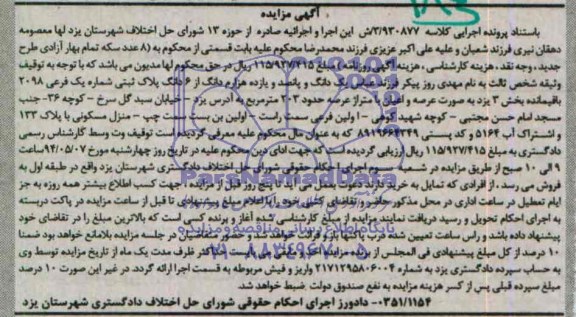 آگهی مزایده
باستناد پرونده اجرایی کلاسه ۳/۹۳۰۸۷۷/ش این اجرا و اجرائیه صادره از حوزه ۱۳ شورای حل اختلاف شهرستان یزد لها معصومه
دهقان نیری فرزند شعبان و علیه علی اکبر عزیزی فرزند محمدرضا محکوم علیه بابت قسمتی از محکوم به (۸ عدد سکه تمام بهار آزادی طرح
جدید، وجه نقد، هزینه کارشناسی، هزینه آگهی روزنامه مبلغ ۱۱۵/۹۲۷/۴۱۵ ریال در حق محکوم لها مدیون می باشد که با توجه به توقیف
وثیقه شخص ثالث به نام مهدی روز پیکر فرزند عباس یک دانگ و پانصد و یازده هزارم دانگ از ۶ دانگ پلاک ثبتی شماره یک فرعی ۲۰۹۸
باقیمانده بخش ۳ یزد به صورت عرصه و اعیان با متراژ عرصه حدود ۲۰۳ مترمربع به آدرس یزد - خیابان سید گل سرخ - کوچه ۳۶- جنب
مسجد امام حسن مجتبی - کوچه شهید کوهی - اولین فرعی سمت راست - اولین بن بست سمت چپ - منزل مسکونی با پلاک ۱۳۳
و اشتراک آب ۵۱۶۴ و کد پستی ۸۹۱۹۶۶۴۳۴۹ که به عنوان مال محکوم علیه معرفی گردیده است توقیف وت وسط کارشناس رسمی
دادگستری به مبلغ ۱۱۵/۹۲۷/۴۱۵ ریال ارزیابی گردیده است که جهت ادای دین محکوم علیه در تاریخ روز چهارشنبه مورخ ۹۴/۰۵/۰۷ ساعت
۹ الی ۱۰ صبح از طریق مزایده در شعبه سوم اجرای احکام حقوقی شورای حل اختلاف دادگستری شهرستان یزد واقع در طبقه اول به
فروش می رسد، از افرادی که تمایل به خرید دارند دعوت بعمل می آید تا پنج روز قبل از مزایده، جهت کسب اطلاع بیشتر همه روزه به جز
ایام تعطیل در ساعت اداری در محل مذکور حاضر و تقاضای کتبی خود را با اعلام مبلغ پیشنهادی تا قبل از ساعت مزایده در پاکت دربسته
به اجرای احکام تحویل و رسید دریافت نمایند مزایده از مبلغ کارشناسی شده آغاز و برنده کسی است که بالاترین مبلغ را در تقاضای خود
پیشنهاد داده باشد و راس ساعت تعیین شده درب پاکتها باز و قرائت خواهد شد و حضور متقاضیان در جلسه مزایده بلامانع خواهد بود ضمنا
۱۰ درصد از کل مبلغ پیشنهادی فی المجلس از برنده مزایده اخذ و مابقی می بایست حداکثر ظرف مدت یک ماه از تاریخ مزایده توسط وی
به حساب سپرده دادگستری یزد به شماره ۲۱۷۱۲۹۵۸۰۶۰۰۴ واریز و فیش مربوطه به قسمت اجرا ارائه گردد. در غیر این صورت ۱۰ درصد
مبلغ سپرده قبلی پس از کسر هزینه مزایده به نفع صندوق دولت ضبط خواهد شد.
۰۳۵۱/۱۱۵۴- دادورز اجرای احکام حقوقی شورای حل اختلاف دادگستری شهرستان یزد
ParsNamadData